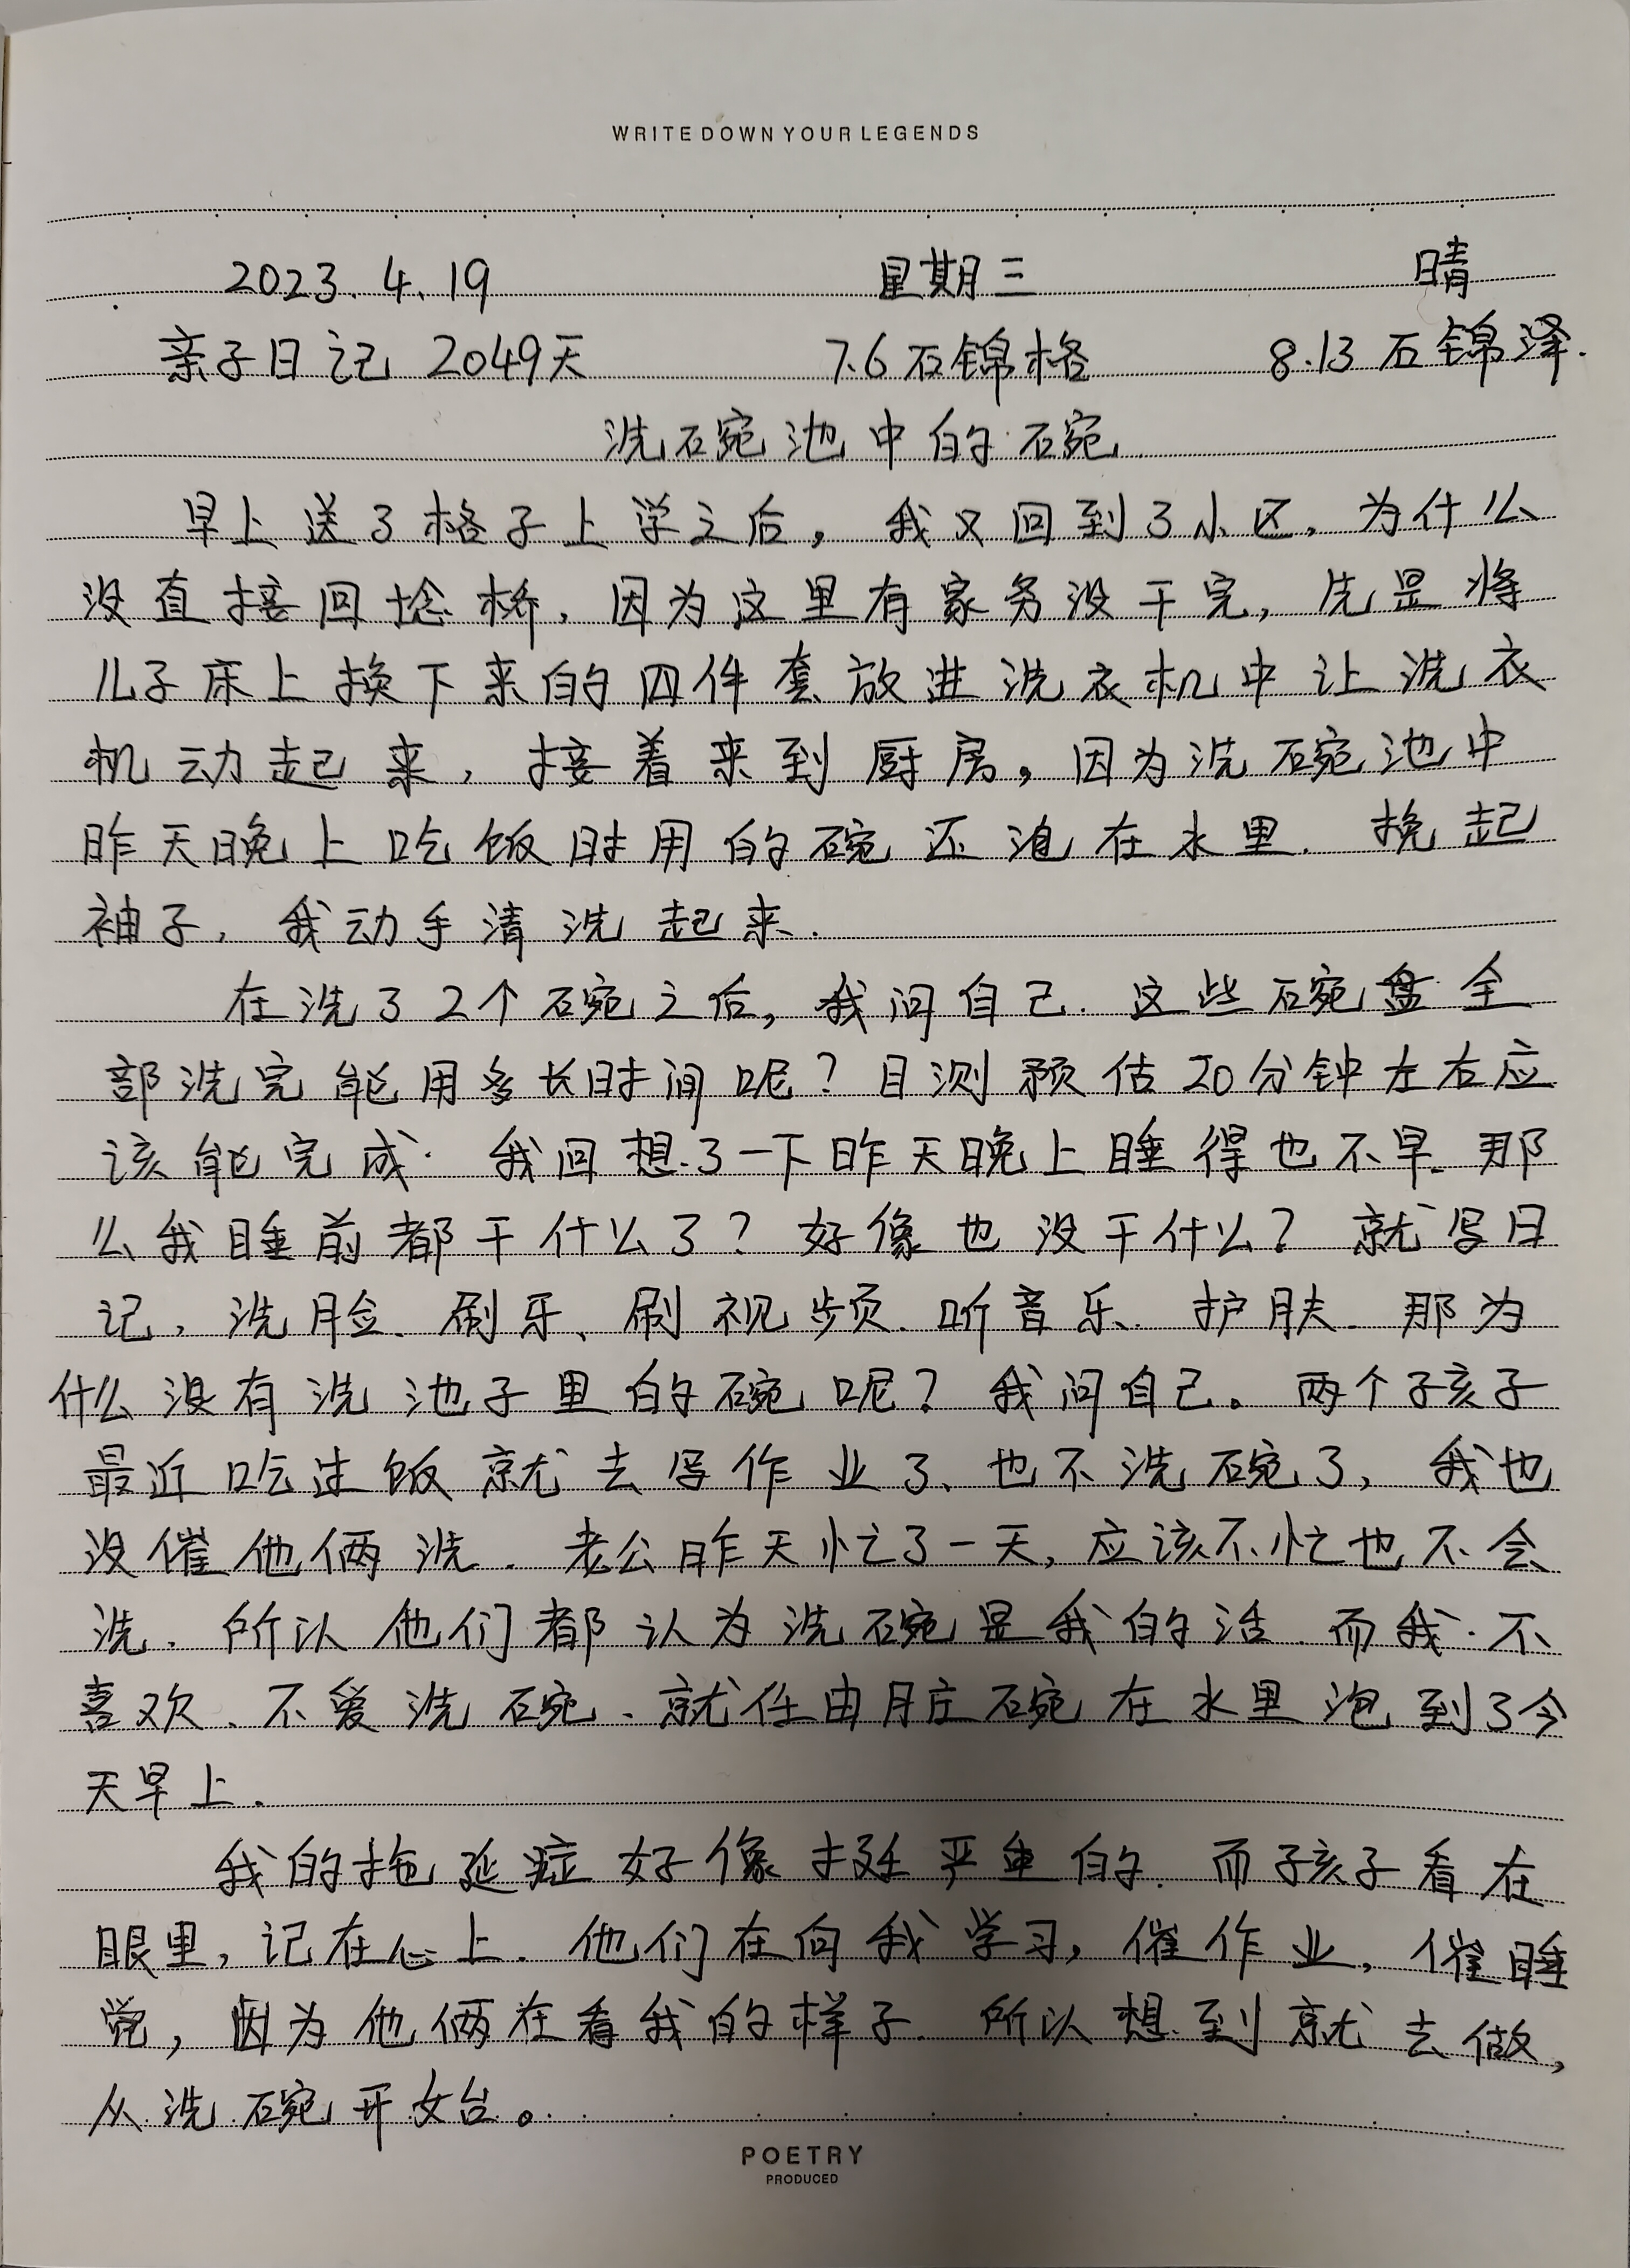 WRITE DOWN YOUR LEGENDS
2023.4.19 星期三 晴
亲子日记 2049天 7.6石锦格 8.13石锦泽.
洗碗池中的碗
早上送了格子上学之后，我又回到了小区，为什么
没直接回埝桥，因为这里有家务没干完，先是将
儿子床上换下来的四件套放进洗衣机中让洗衣
机动起来，接着来到厨房，因为洗碗池中
昨天晚上吃饭时用的碗还泡在水里.挽起
袖子，我动手清洗起来.
在洗了2个碗之后，我问自己.这些碗盘全
部洗完能用多长时间呢？目测预估20分钟左右应
该能完成.我回想了一下昨天晚上睡得也不早.那
么我睡前都干什么了？好像也没干什么？就写日
记，洗脸、刷牙、刷视频.听音乐.护肤.那为
什么没有洗池子里的碗呢？我问自己。两个孩子
最近吃过饭就去写作业了、也不洗碗了，我也
没催他俩洗.老公昨天忙了一天，应该不忙也不会
洗.所以他们都认为洗碗是我的活.而我.不
喜欢、不爱洗碗、就任由脏碗在水里泡到了今
天早上.
我的拖延症好像挺严重的.而孩子看在
眼里，记在心上.他们在向我学习，催作业，催睡
觉，因为他俩在看我的样子.所以想到就去做，
从洗碗开始。
POETRY
PRODUCED